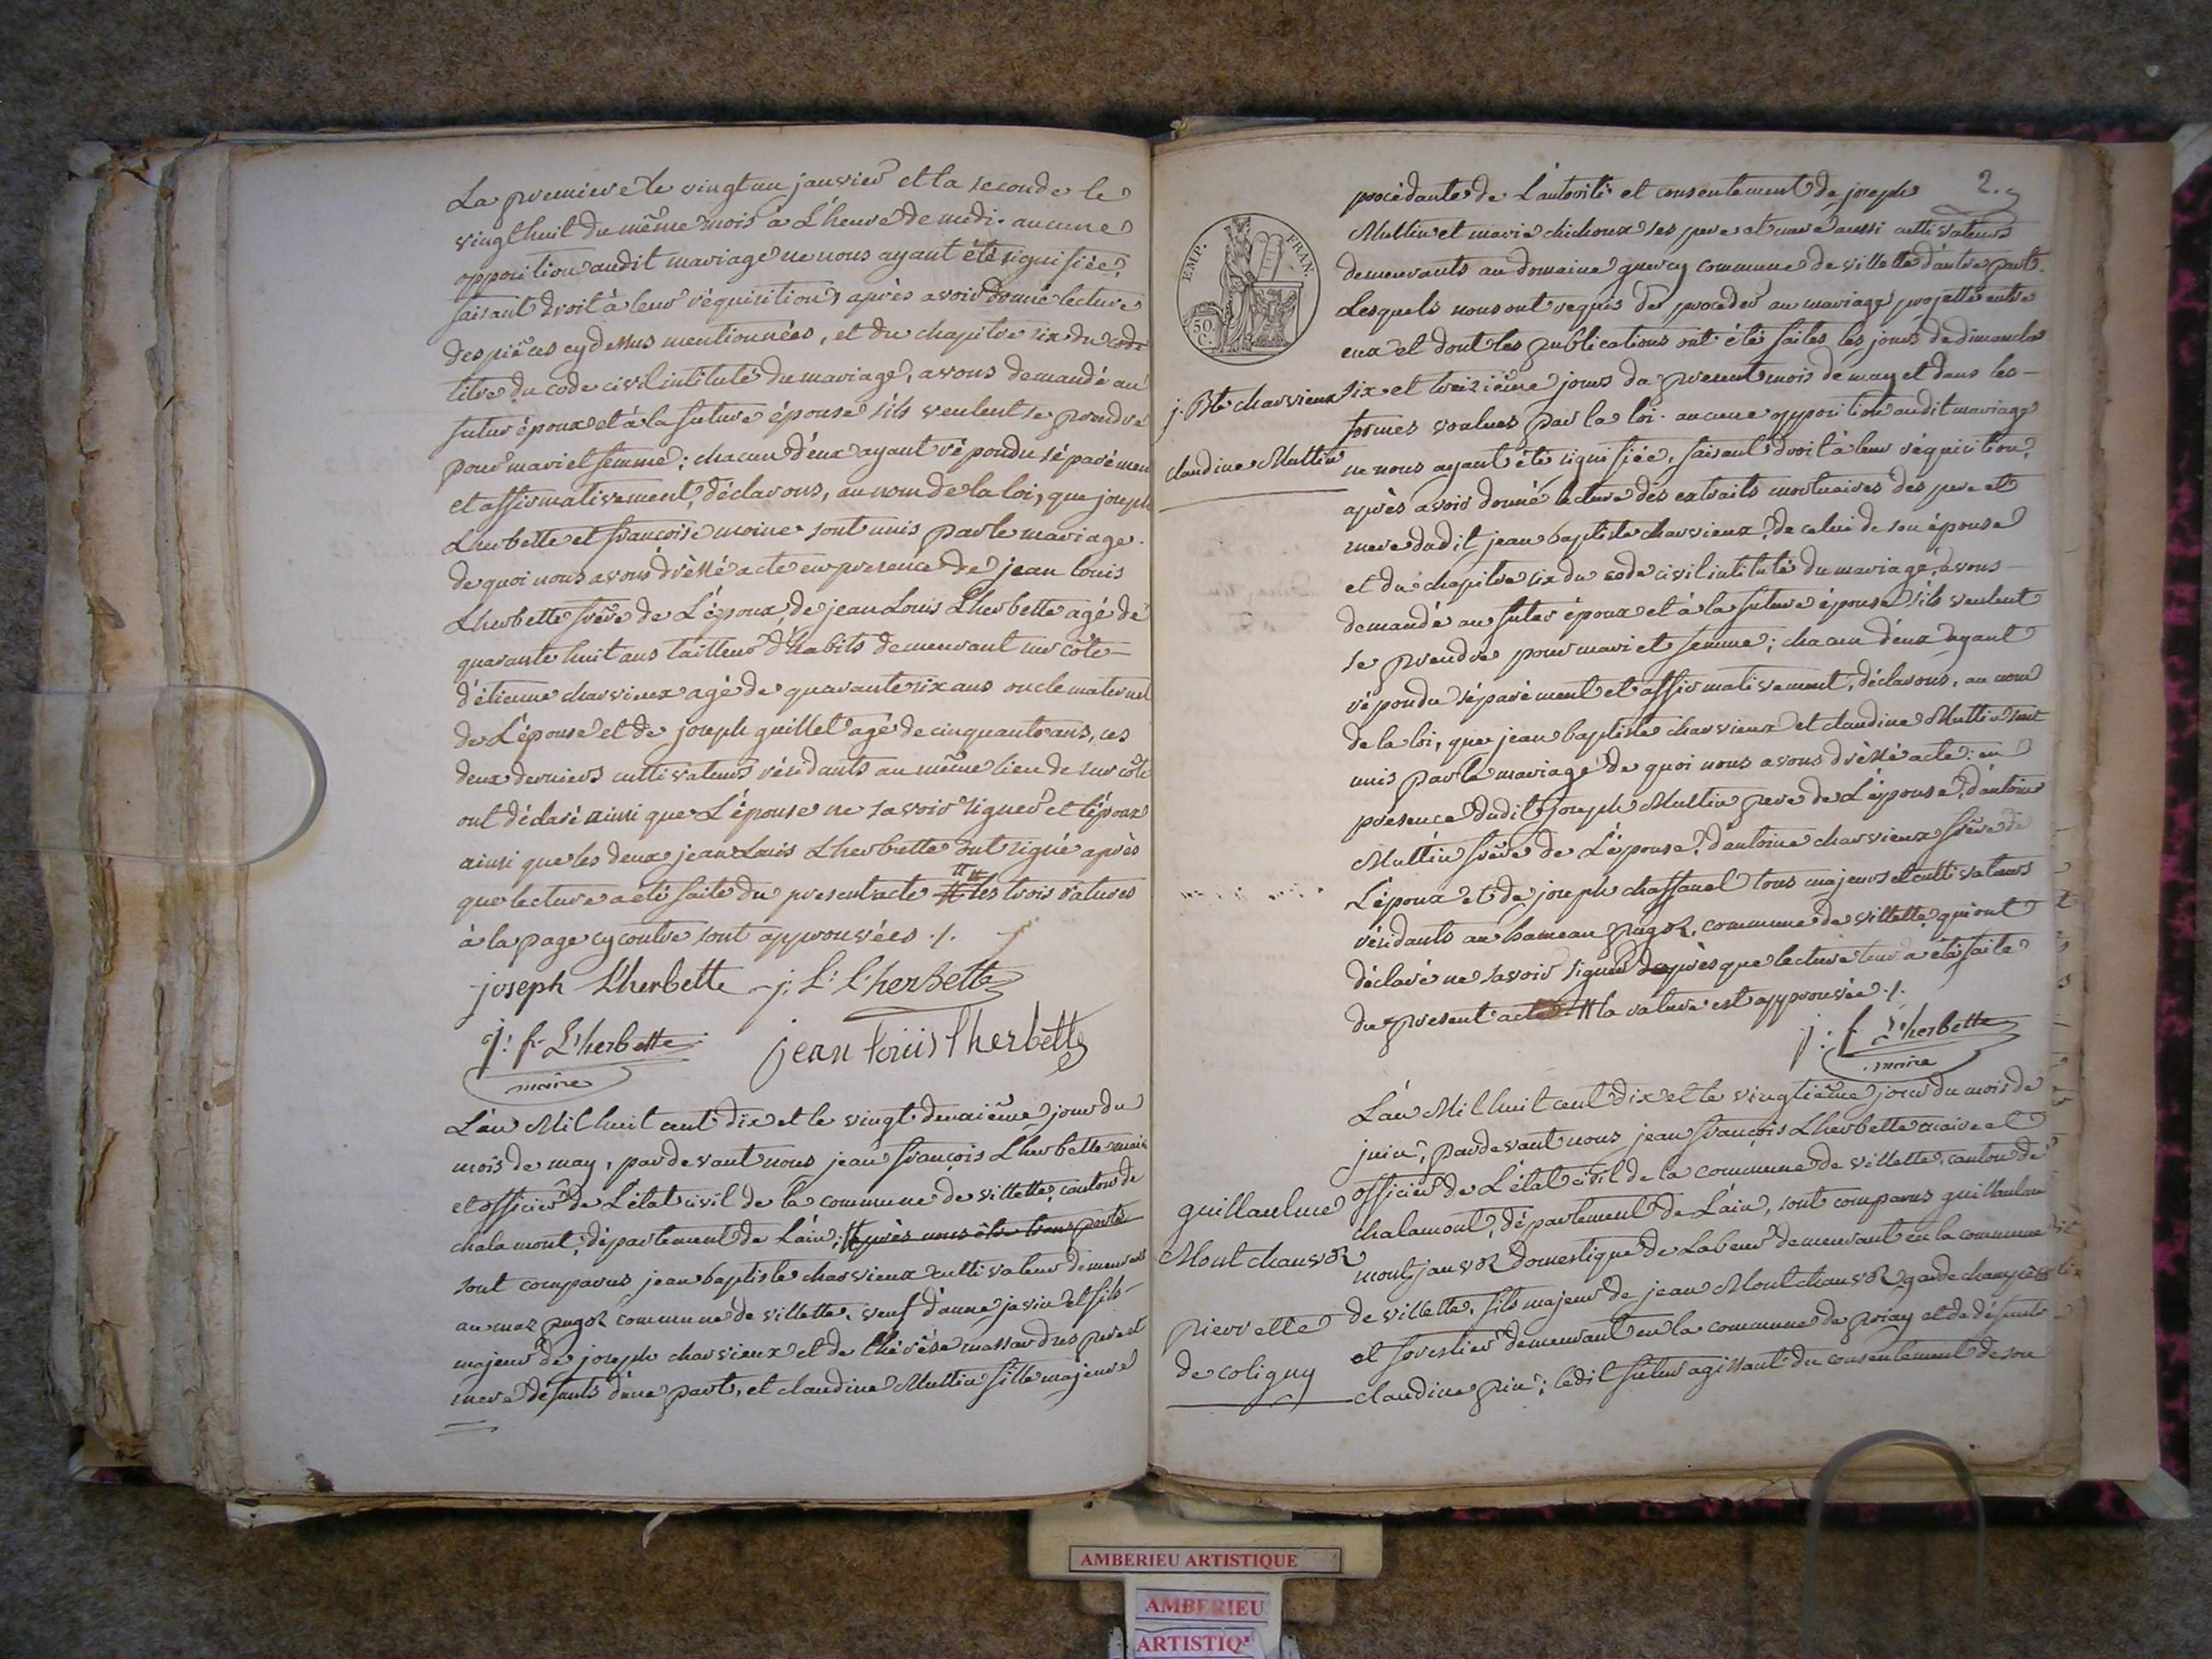 La premiere le vingt un janvier et la seconde le
vingt huit du même mois a L'heure de midi. aucune
opposition audit mariage ne nous ayant été signifiée,
faisant droit à leur réquisition, après avoir donné lecture
des pièces cy dessus mentionnées, et du chapitre six du code
titre du code civil intitulé du mariage, avons demandé au
futur époux et à la future épouse s'ils veulent se prendre
pour mari et femme; chacun d'eux ayant répondu séparémen
et affirmativement, déclarons, au nom de la loi, que joseph
Lherbette et francoise moine sont unis par le mariage.
de quoi nous avons dressé acte en presence de jean Louis
Lherbette frère de L'époux, de jean Louis Lherbette agé de
quarante huit ans tailleur d'habits demeurant sur côte
d'étienne charvieux agé de quarante six ans oncle maternel
de L'épouse et de joseph guillet agé de cinquante ans, ces
deux derniers cultivateurs résidants au même lieu de sur côte
ont déclaré ainsi que L'épouse ne savoir signer et l'époux
ainsi que les deux jean Louis Lherbette ont signé après
que lecture a été faite du present acte les trois ratures
à la page cy contre sont approuvées ./.
joseph Lherbette j: L: L'herbette
j: f. L'herbette jean louis l'herbette
maire
L'an Mil huit cent dix et le vingt deuxième jour du
mois de may, pardevant nous jean françois Lherbette mair
et officier de L'état civil de la commune de villette, canton de
chalamont, département de L'ain, après nous être transportés
sont comparus jean baptiste charvieux cultivateur demeurant
au mas pugoz commune de villette, veuf d'anne javin et fils
majeur de joseph charvieux et de thérèse massardus pere et
mere défunts d'une part, et claudine Multin fille majeure
2.
procédante de L'autorité et consentement de joseph
Multin et marie chichoux ses pere et mere aussi cultivateurs
demeurants au domaine quercy commune de villette d'autre part.
Lesquels nous ont requis de proceder au mariage projetté entre
eux et dont les publications ont été faites les jours de dimanche
six et treizième jours du present mois de may et dans les
formes voulues par la loi. aucune opposition audit mariage
ne nous ayant été signifiée, faisant droit à leur réquisition,
après avoir donné lecture des extraits mortuaires des pere et
mere dudit jean baptiste charvieux, de celui de son épouse
et du chapitre six du code civil intitulé du mariage, avons
demandé au futur époux et à la future épouse s'ils veulent
se prendre pour mari et femme; chacun d'eux ayant
répondu séparément et affirmativement, déclarons, au nom
de la loi, que jean baptiste charvieux et claudine Multin sont
unis par le mariage de quoi nous avons dressé acte: en
presence dudit joseph Multin pere de L'épouse, d'antoine
Multin frère de L'épouse, d'antoine charvieux frère de
L'époux et de joseph chassanel tous majeurs et cultivateurs
résidants au hameau pugoz, commune de villette, qui ont
déclaré ne savoir signer après que lecture leur a été faite
du present acte la rature est approuvée ./.
j: f L'herbette
maire
L'an Mil huit cent dix et le vingtième jour du mois de
juin, pardevant nous jean françois Lherbette maire et
officier de L'état civil de la commune de villette, canton de
chalamont, département de L'ain, sont comparus guillaulme
montjanvoz domestique de Labeur demeurant en la commune
de villette, fils majeur de jean Montchanvoz garde champêtre
et forestier demeurant en la commune de priay et de défunte
claudine pin; ledit futur agissant du consentement de son
EMP. FRAN.
50. C.
j. Bte charvieux
claudine Multin
guillaulme
Montchanvoz
pierrette
de coligny
AMBERIEU ARTISTIQUE
AMBERIEU
ARTISTIQ